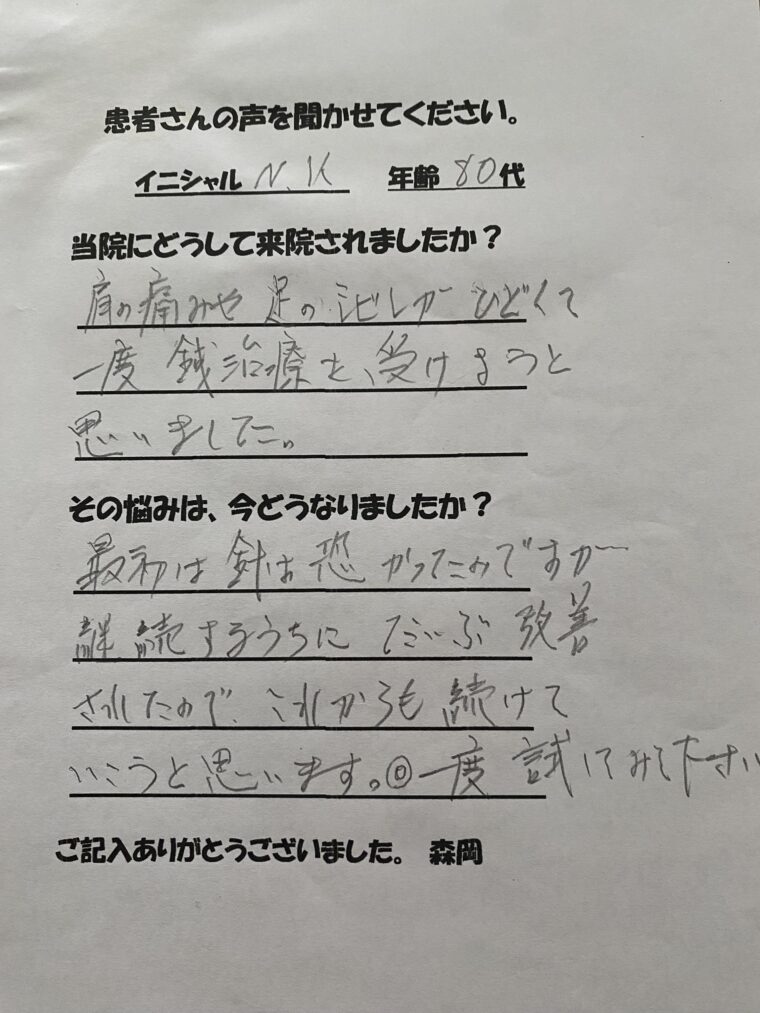 患者さんの声を聞かせてください。
イニシャル N.K 年齢 80代
当院にどうして来院されましたか？
肩の痛みや足のシビレがひどくて
一度鍼治療を、受けようと
思いました。
その悩みは、今どうなりましたか？
最初は針は恐かったのですが
継続するうちにだいぶ改善
されたので、これからも続けて
いこうと思います。◎一度試してみて下さい
ご記入ありがとうございました。 森岡